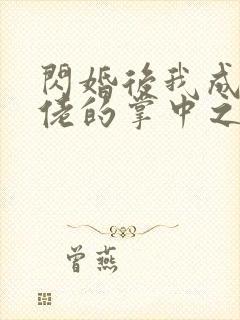 閃婚後我成
佬的掌中之
曾燕